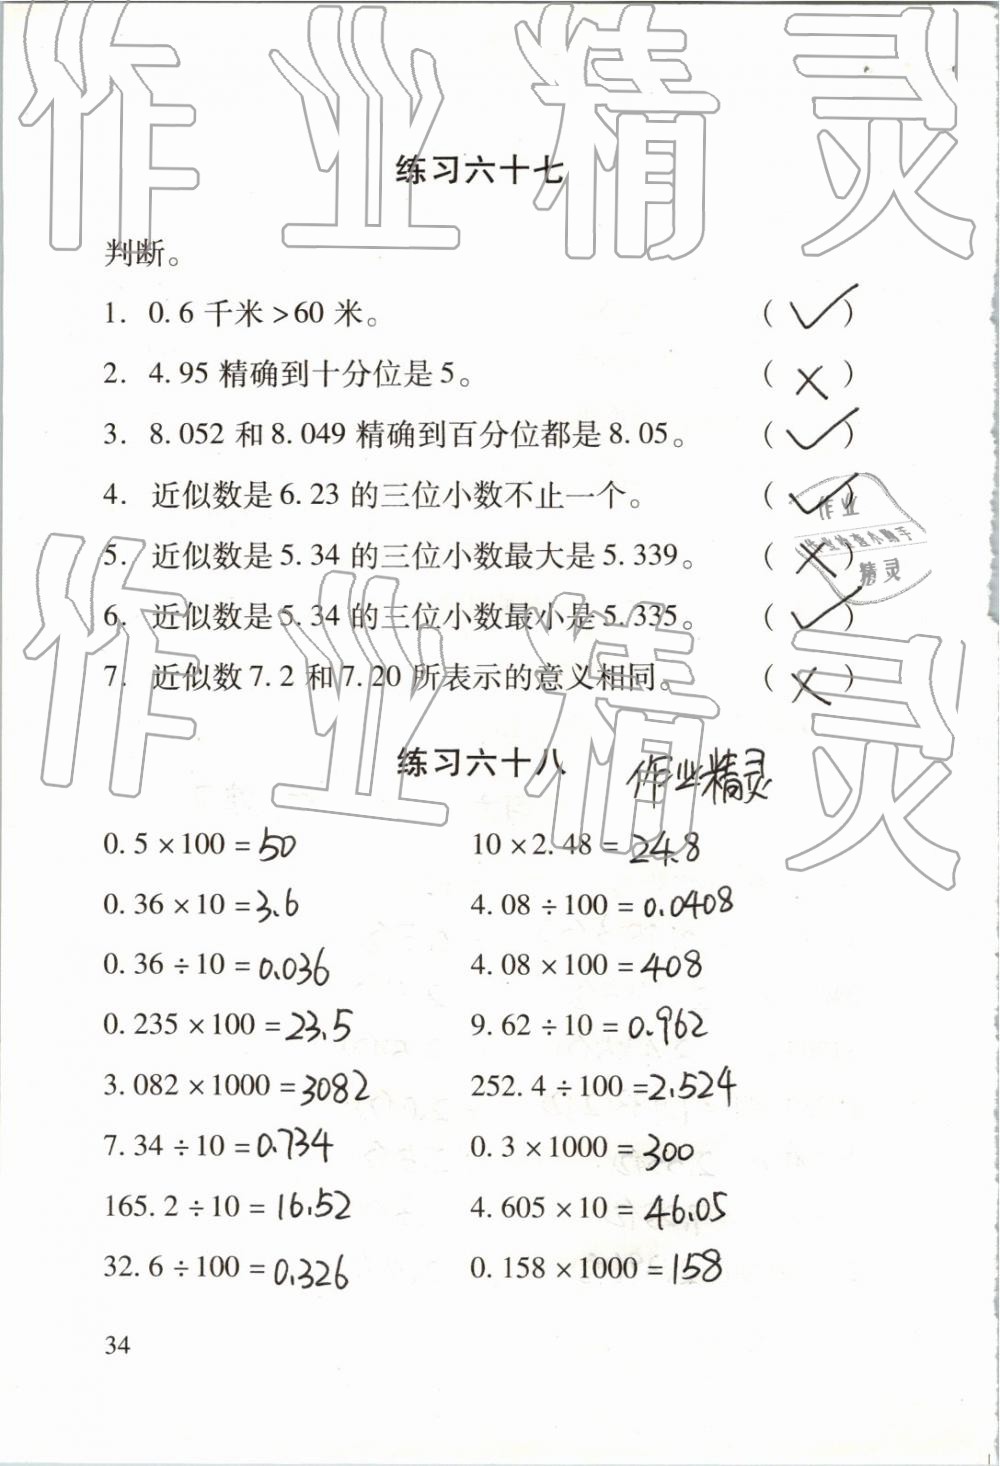 作业精灵
练习六十七
判断。
1. 0.6 千米>60 米。 (✓)
2. 4.95 精确到十分位是 5。 (×)
3. 8.052 和 8.049 精确到百分位都是 8.05。 (✓)
4. 近似数是 6.23 的三位小数不止一个。 (✓)
作业
精灵
5. 近似数是 5.34 的三位小数最大是 5.339。 (×)
6. 近似数是 5.34 的三位小数最小是 5.335。 (✓)
7. 近似数 7.2 和 7.20 所表示的意义相同。 (×)
作业精灵
练习六十八 作业精灵
0.5×100=50 10×2.48=24.8
0.36×10=3.6 4.08÷100=0.0408
0.36÷10=0.036 4.08×100=408
0.235×100=23.5 9.62÷10=0.962
3.082×1000=3082 252.4÷100=2.524
7.34÷10=0.734 0.3×1000=300
165.2÷10=16.52 4.605×10=46.05
32.6÷100=0.326 0.158×1000=158
34